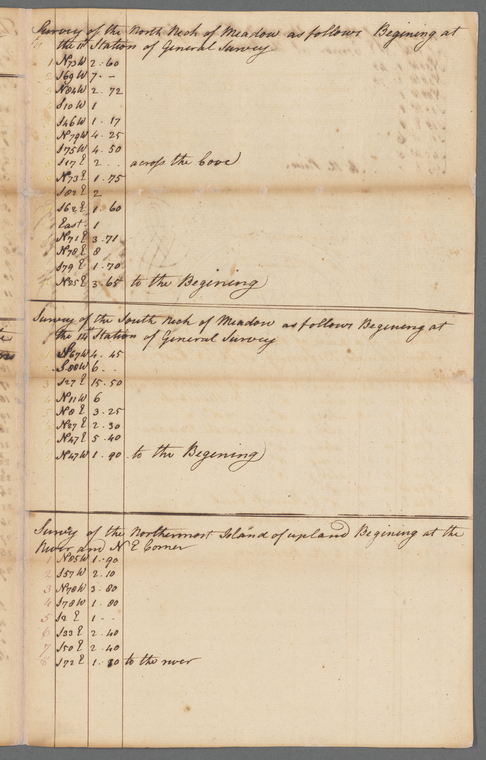 Survey of the North Neck of Meadow as follows Begining at
the 11th Station of General Survey
1 N73W 2.60
2 S69W 7 --
3 N84W 2.72
S10W 1
S46W 1.17
N79W 4.25
S75W 4.50
S17E 2 .. across the Cove
N73E 1.75
S82E 2
S62E 1.60
East 1
N71E 3.71
N78E 8
S79E 1.70
N25E 3.65 to the Begining
Survey of the South Neck of Meadow as follows Begining at
the 14th Station of General Survey
N67W 4.45
S80W 6 ..
3 S27E 15.50
4 N11W 6
5 N8E 3.25
N27E 2.30
N47E 5.40
N47W 1.90 to the Begening
Survey of the Northermost Island of upland Begining at the
River and N E Corner
1 N85W 1.90
2 S57W 2.10
3 N78W 3.80
4 S78W 1.80
5 S2E 1 --
6 S33E 2.40
7 S50E 2.40
8 S72E 1.80 to the river